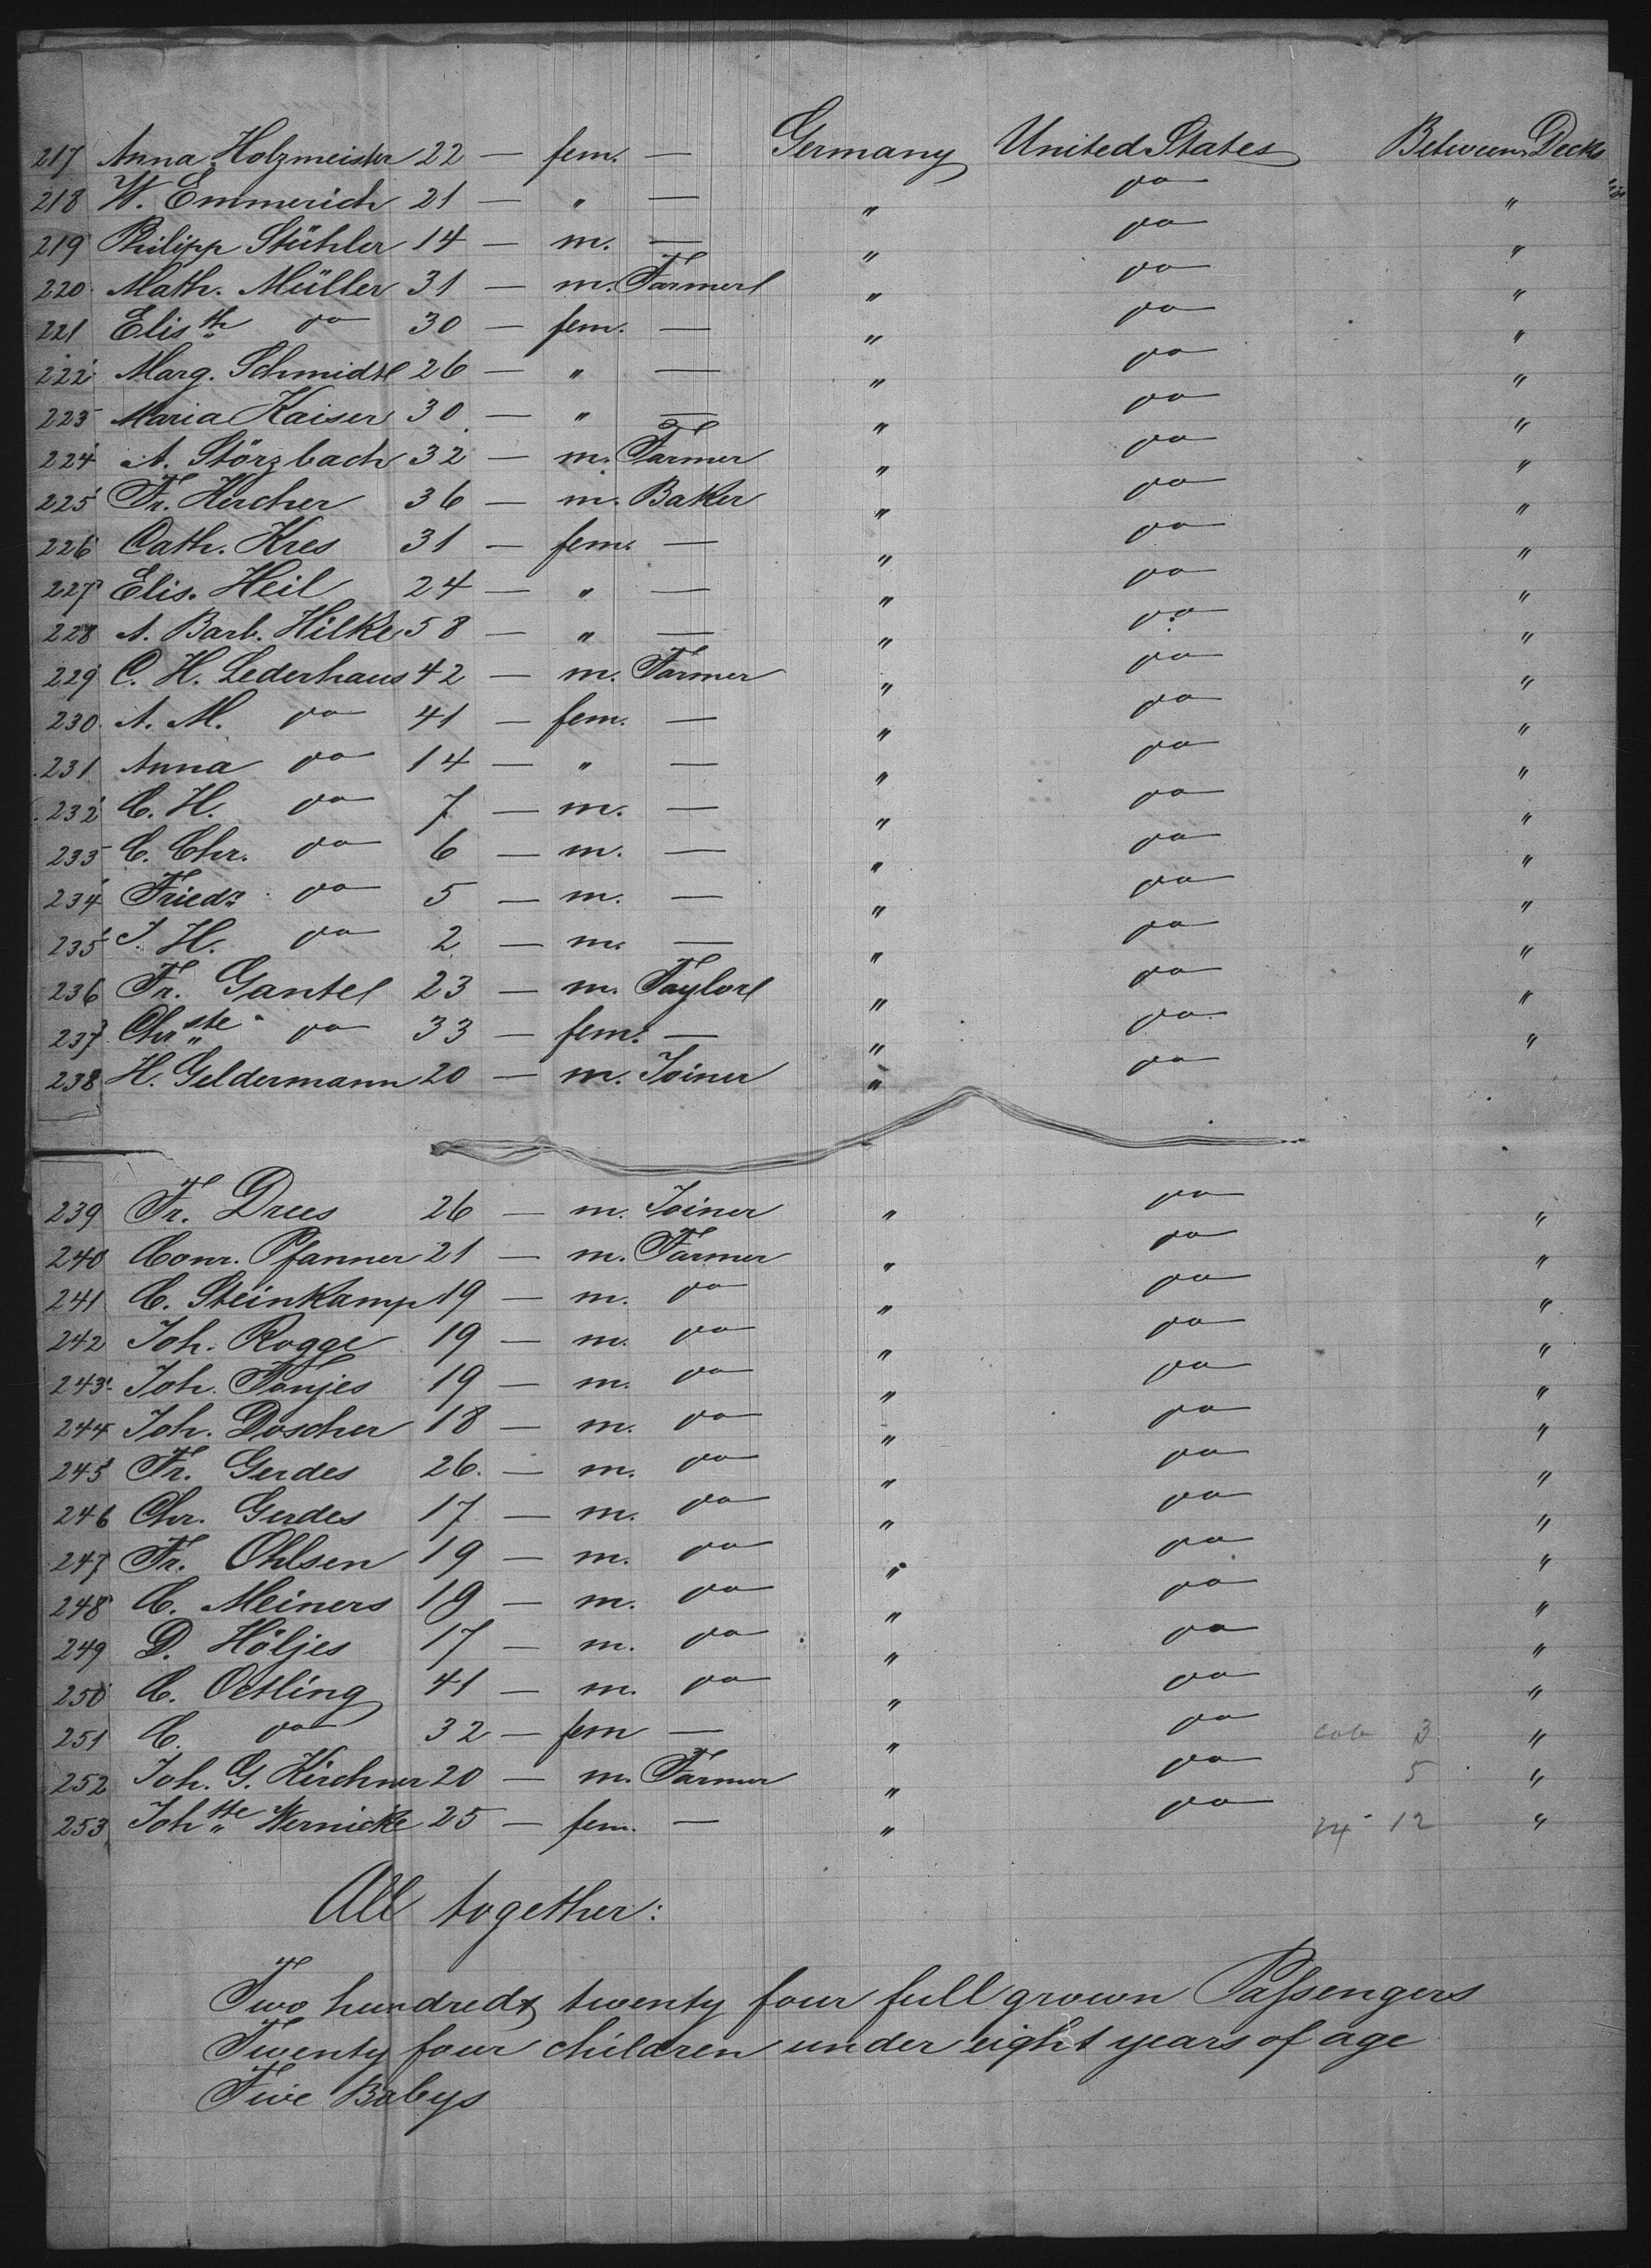 217 Anna Holzmeister 22 — fem. — Germany United States Between Decks
218 W. Emmerich 21 — " — " do "
219 Philipp Stühler 14 — m. — " do "
220 Math. Müller 31 — m. Farmer " do "
221 Elisth do 30 — fem. — " do "
222 Marg. Schmidt 26 — " — " do "
223 Maria Kaiser 30 — " — " do "
224 A. Störzbach 32 — m. Farmer " do "
225 Fr. Hercher 36 — m. Baker " do "
226 Cath. Kres 31 — fem. — " do "
227 Elis. Heil 24 — " — " do "
228 A. Barb. Hilke 58 — " — " do "
229 C. H. Lederhaus 42 — m. Farmer " do "
230 A. M. do 41 — fem. — " do "
231 Anna do 14 — " — " do "
232 C. H. do 7 — m. — " do "
233 C. Chr. do 6 — m. — " do "
234 Friedr. do 5 — m. — " do "
235 J. H. do 2 — m. — " do "
236 Fr. Gantel 23 — m. Taylor " do "
237 Chrste do 33 — fem. — " do "
238 H. Geldermann 20 — m. Joiner " do
239 Fr. Drees 26 — m. Joiner " do "
240 Conr. Pfanner 21 — m. Farmer " do "
241 C. Steinkamp 19 — m. do " do "
242 Joh. Rogge 19 — m. do " do "
243 Joh. Tönjes 19 — m. do " do "
244 Joh. Doscher 18 — m. do " do "
245 Fr. Gerdes 26. — m. do " do "
246 Chr. Gerdes 17 — m. do " do "
247 Fr. Ohlsen 19 — m. do " do "
248 C. Meiners 19 — m. do " do "
249 D. Höljes 17 — m. do " do "
250 C. Oetling 41 — m. do " do "
251 C. do 32 — fem — " do 3 "
252 Joh. G. Kirchner 20 — m. Farmer " do 5 "
253 Johtte Wernicke 25 — fem. — " do 12 "
All together:
Two hundredt twenty four full grown Passengers
Twenty four children under eight years of age
Five Babys